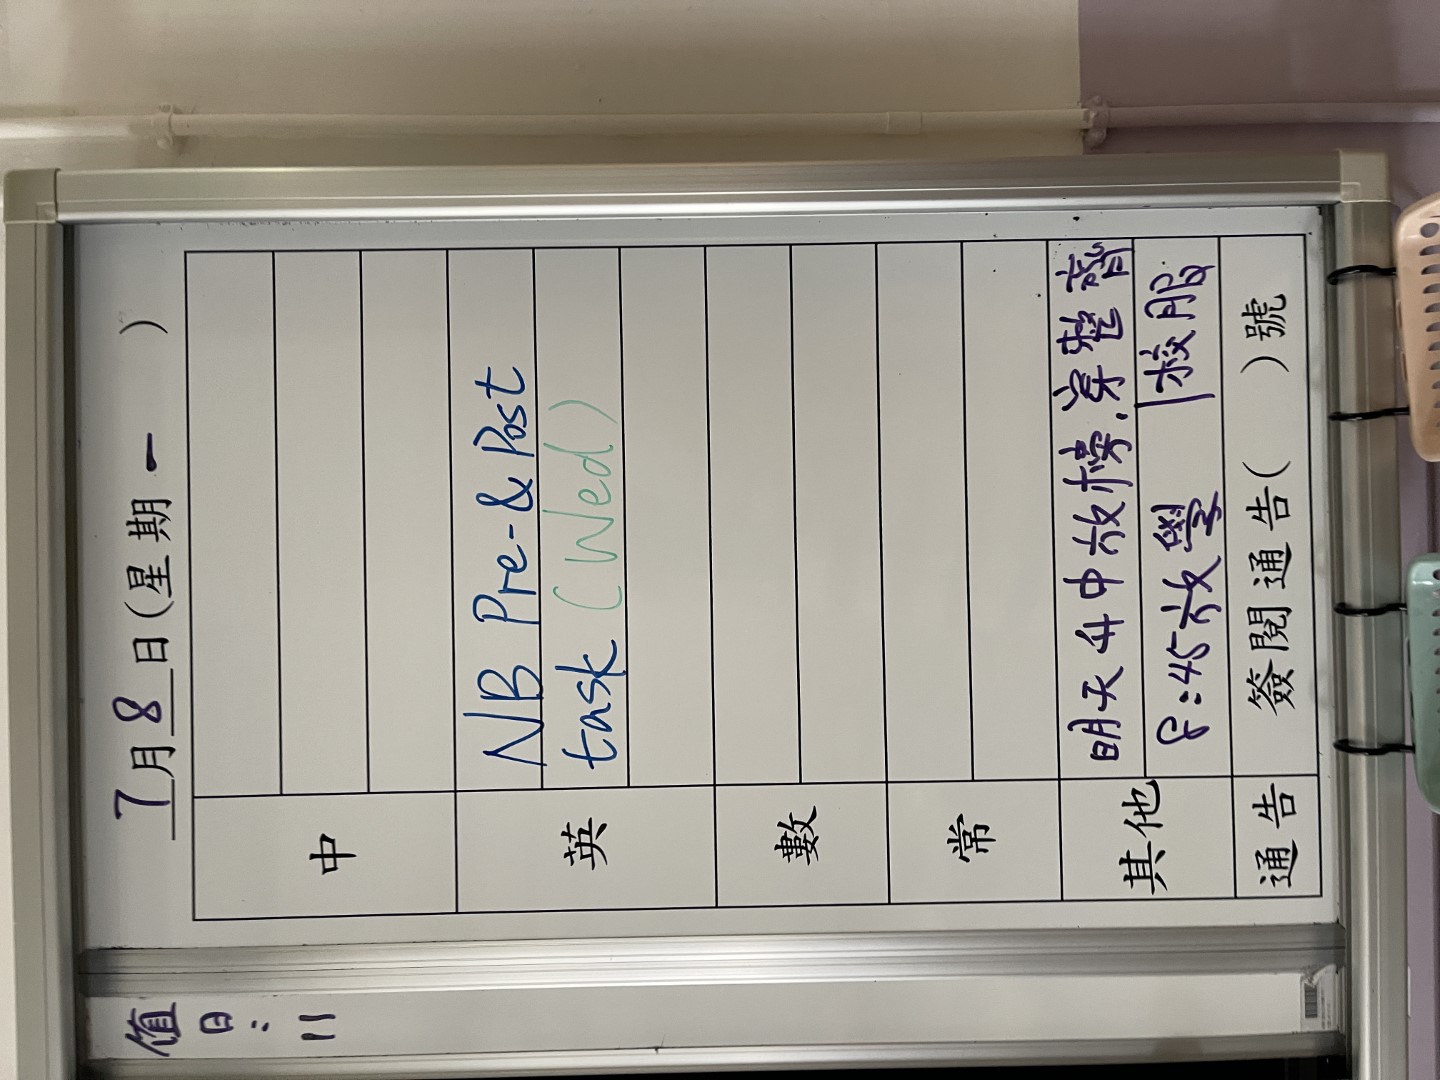 7月8日(星期一)
中
英
NB Pre-&Post
task (Wed)
數
常
其他
明天升中放榜.穿整齊
8:45放學 校服
通告
簽閱通告( )號
值
日:
11